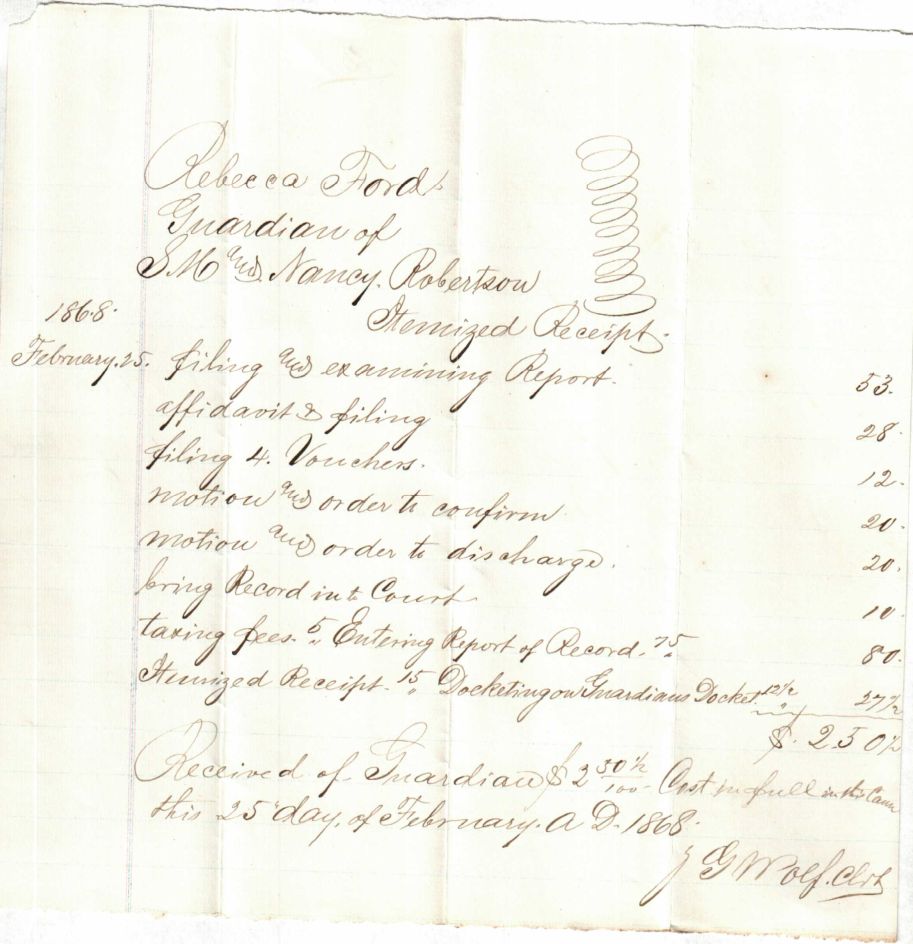 Rebecca Ford
Guardian of
S. M and Nancy. Robertson
Itemized Receipt.
1868.
February. 25. filing and examining Report. 53.
affidavit & filing 28.
filing 4. Vouchers. 12.
motion and order to confirm 20.
motion and order to discharge. 20.
bring Record into Court 10
taxing fees. 5" Entering Report of Record. 75" 80.
Itemized Receipt. 15" Docketing on Guardians Docket. 12 1/2" 27 1/2
$. 2.50 1/2
Received of Guardian $ 2 50 1/2/100 Cost in full in this Cause
this 25" day, of February. A D. 1868.
G Wolf. Clrk